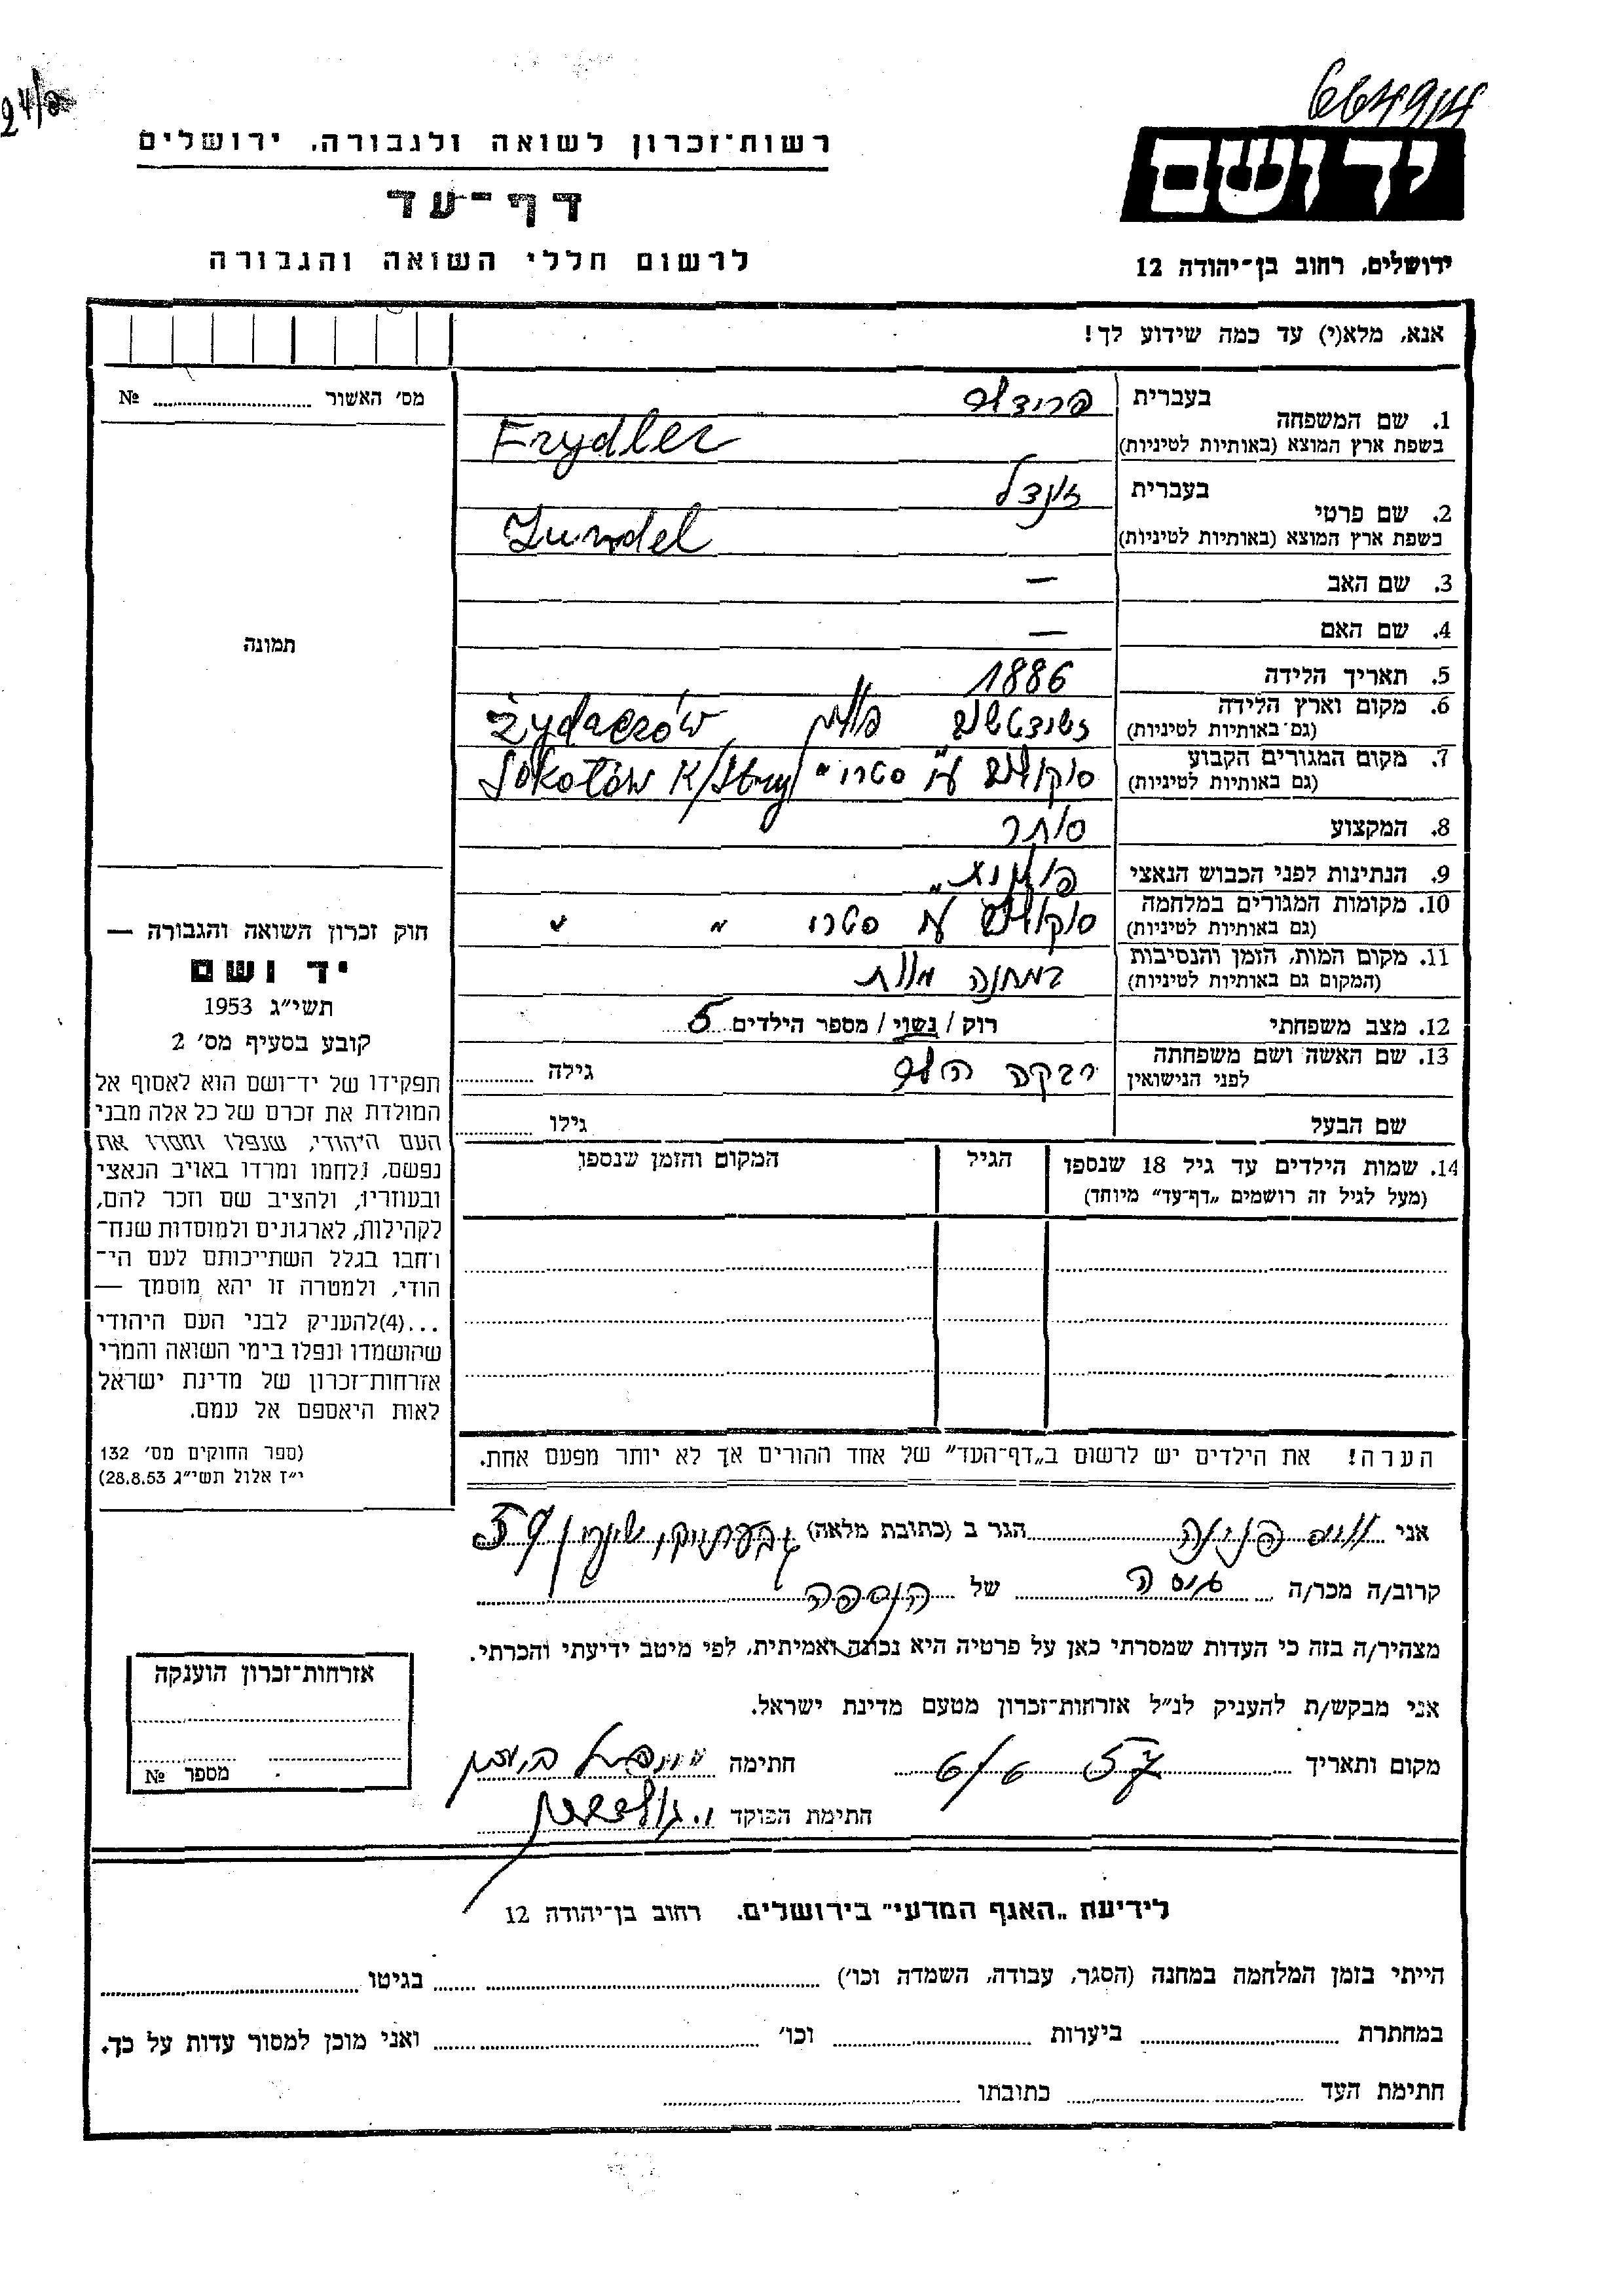 664914
24/2
יד ושם
רשות־זכרון לשואה ולגבורה, ירושלים
דף־עד
לרשום חללי השואה והגבורה
ירושלים, רחוב בן־יהודה 12
אנא, מלא(י) עד כמה שידוע לך!
מס' האשור № 
תמונה
1. שם המשפחה בעברית פרידלר
בשפת ארץ המוצא (באותיות לטיניות) Frydler
2. שם פרטי בעברית זונדל
בשפת ארץ המוצא (באותיות לטיניות) Zundel
3. שם האב —
4. שם האם —
5. תאריך הלידה 1886
6. מקום וארץ הלידה פולין Żydaczów
(גם באותיות לטיניות)
7. מקום המגורים הקבוע סוקולוב ע"י סטרי Sokołów K/Stryj
(גם באותיות לטיניות)
8. המקצוע סוחר
9. הנתינות לפני הכבוש הנאצי פולנית
10. מקומות המגורים במלחמה סוקולוב ע"י סטרי " "
(גם באותיות לטיניות)
11. מקום המות, הזמן והנסיבות במחנה מות
(המקום גם באותיות לטיניות)
12. מצב משפחתי רוק / נשוי / מספר הילדים 5
13. שם האשה ושם משפחתה רבקה גילה
לפני הנישואין
שם הבעל גילו
14. שמות הילדים עד גיל 18 שנספו הגיל המקום והזמן שנספו
(מעל לגיל זה רושמים „דף־עד" מיוחד)
הערה! את הילדים יש לרשום ב„דף־העד" של אחד ההורים אך לא יותר מפעם אחת.
חוק זכרון השואה והגבורה —
יד ושם
תשי"ג 1953
קובע בסעיף מס' 2
תפקידו של יד־ושם הוא לאסוף אל
המולדת את זכרם של כל אלה מבני
העם היהודי, שנפלו ומסרו את
נפשם, נלחמו ומרדו באויב הנאצי
ובעוזריו, ולהציב שם וזכר להם,
לקהילות, לארגונים ולמוסדות שנח־
רחבו בגלל השתייכותם לעם הי־
הודי, ולמטרה זו יהא מוסמך —
...(4)להעניק לבני העם היהודי
שהושמדו ונפלו בימי השואה והמרי
אזרחות־זכרון של מדינת ישראל
לאות היאספם אל עמם.
(ספר החוקים מס' 132
י"ז אלול תשי"ג 28.8.53)
אני פנינה הגר ב (כתובת מלאה) גבעתיים,
קרוב/ה מכר/ה של הנספה
מצהיר/ה בזה כי העדות שמסרתי כאן על פרטיה היא נכונה ואמיתית, לפי מיטב ידיעתי והכרתי.
אני מבקש/ת להעניק לנ"ל אזרחות־זכרון מטעם מדינת ישראל.
מקום ותאריך חתימה
חתימת הפוקד
אזרחות־זכרון הוענקה
מספר №
לידיעת „האגף המדעי" בירושלים. רחוב בן־יהודה 12
הייתי בזמן המלחמה במחנה (הסגר, עבודה, השמדה וכו') בגיטו
במחתרת ביערות וכו' ואני מוכן למסור עדות על כך.
חתימת העד כתובתו